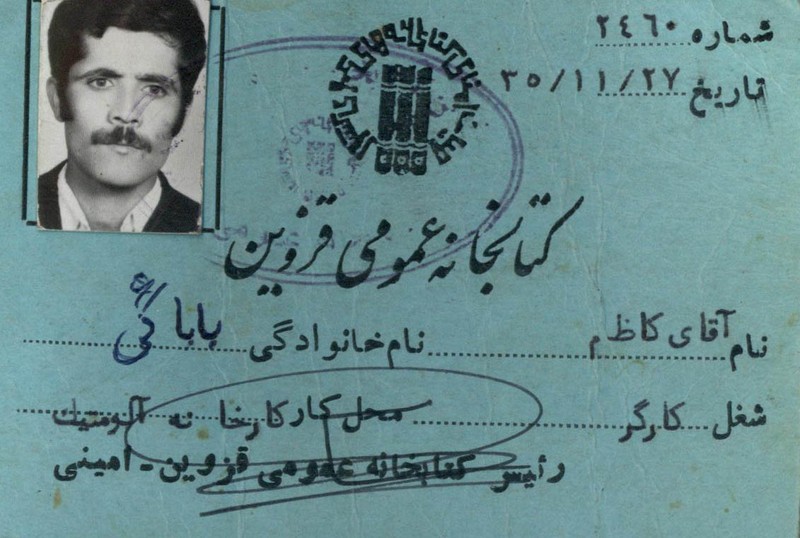 شماره ۲۴۶۰
تاریخ ۳۵/۱۱/۲۷
کتابخانه عمومی قزوین
نام آقای کاظم نام خانوادگی بابا ئی
شغل کارگر محل کار کارخا نه
رئیس کتابخانه عمومی قزوین - امینی